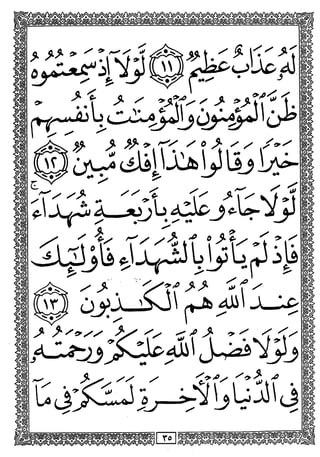 لَهُۥ عَذَابٌ عَظِيمٌ ١١ لَّوْلَآ إِذْ سَمِعْتُمُوهُ
ظَنَّ ٱلْمُؤْمِنُونَ وَٱلْمُؤْمِنَٰتُ بِأَنفُسِهِمْ
خَيْرًا وَقَالُوا۟ هَٰذَآ إِفْكٌ مُّبِينٌ ١٢
لَّوْلَا جَآءُو عَلَيْهِ بِأَرْبَعَةِ شُهَدَآءَ ۚ
فَإِذْ لَمْ يَأْتُوا۟ بِٱلشُّهَدَآءِ فَأُو۟لَٰٓئِكَ
عِندَ ٱللَّهِ هُمُ ٱلْكَٰذِبُونَ ١٣
وَلَوْلَا فَضْلُ ٱللَّهِ عَلَيْكُمْ وَرَحْمَتُهُۥ
فِى ٱلدُّنْيَا وَٱلْءَاخِرَةِ لَمَسَّكُمْ فِى مَآ
٣٥